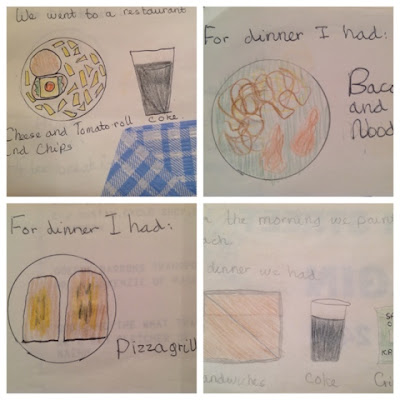 We went to a restaurant
Cheese and Tomato roll
and chips
coke
For dinner I had:
Baco
and
Nood
For dinner I had:
Pizzagrill
the morning we pain
ach
dinner we had
andwiches
coke
Cri